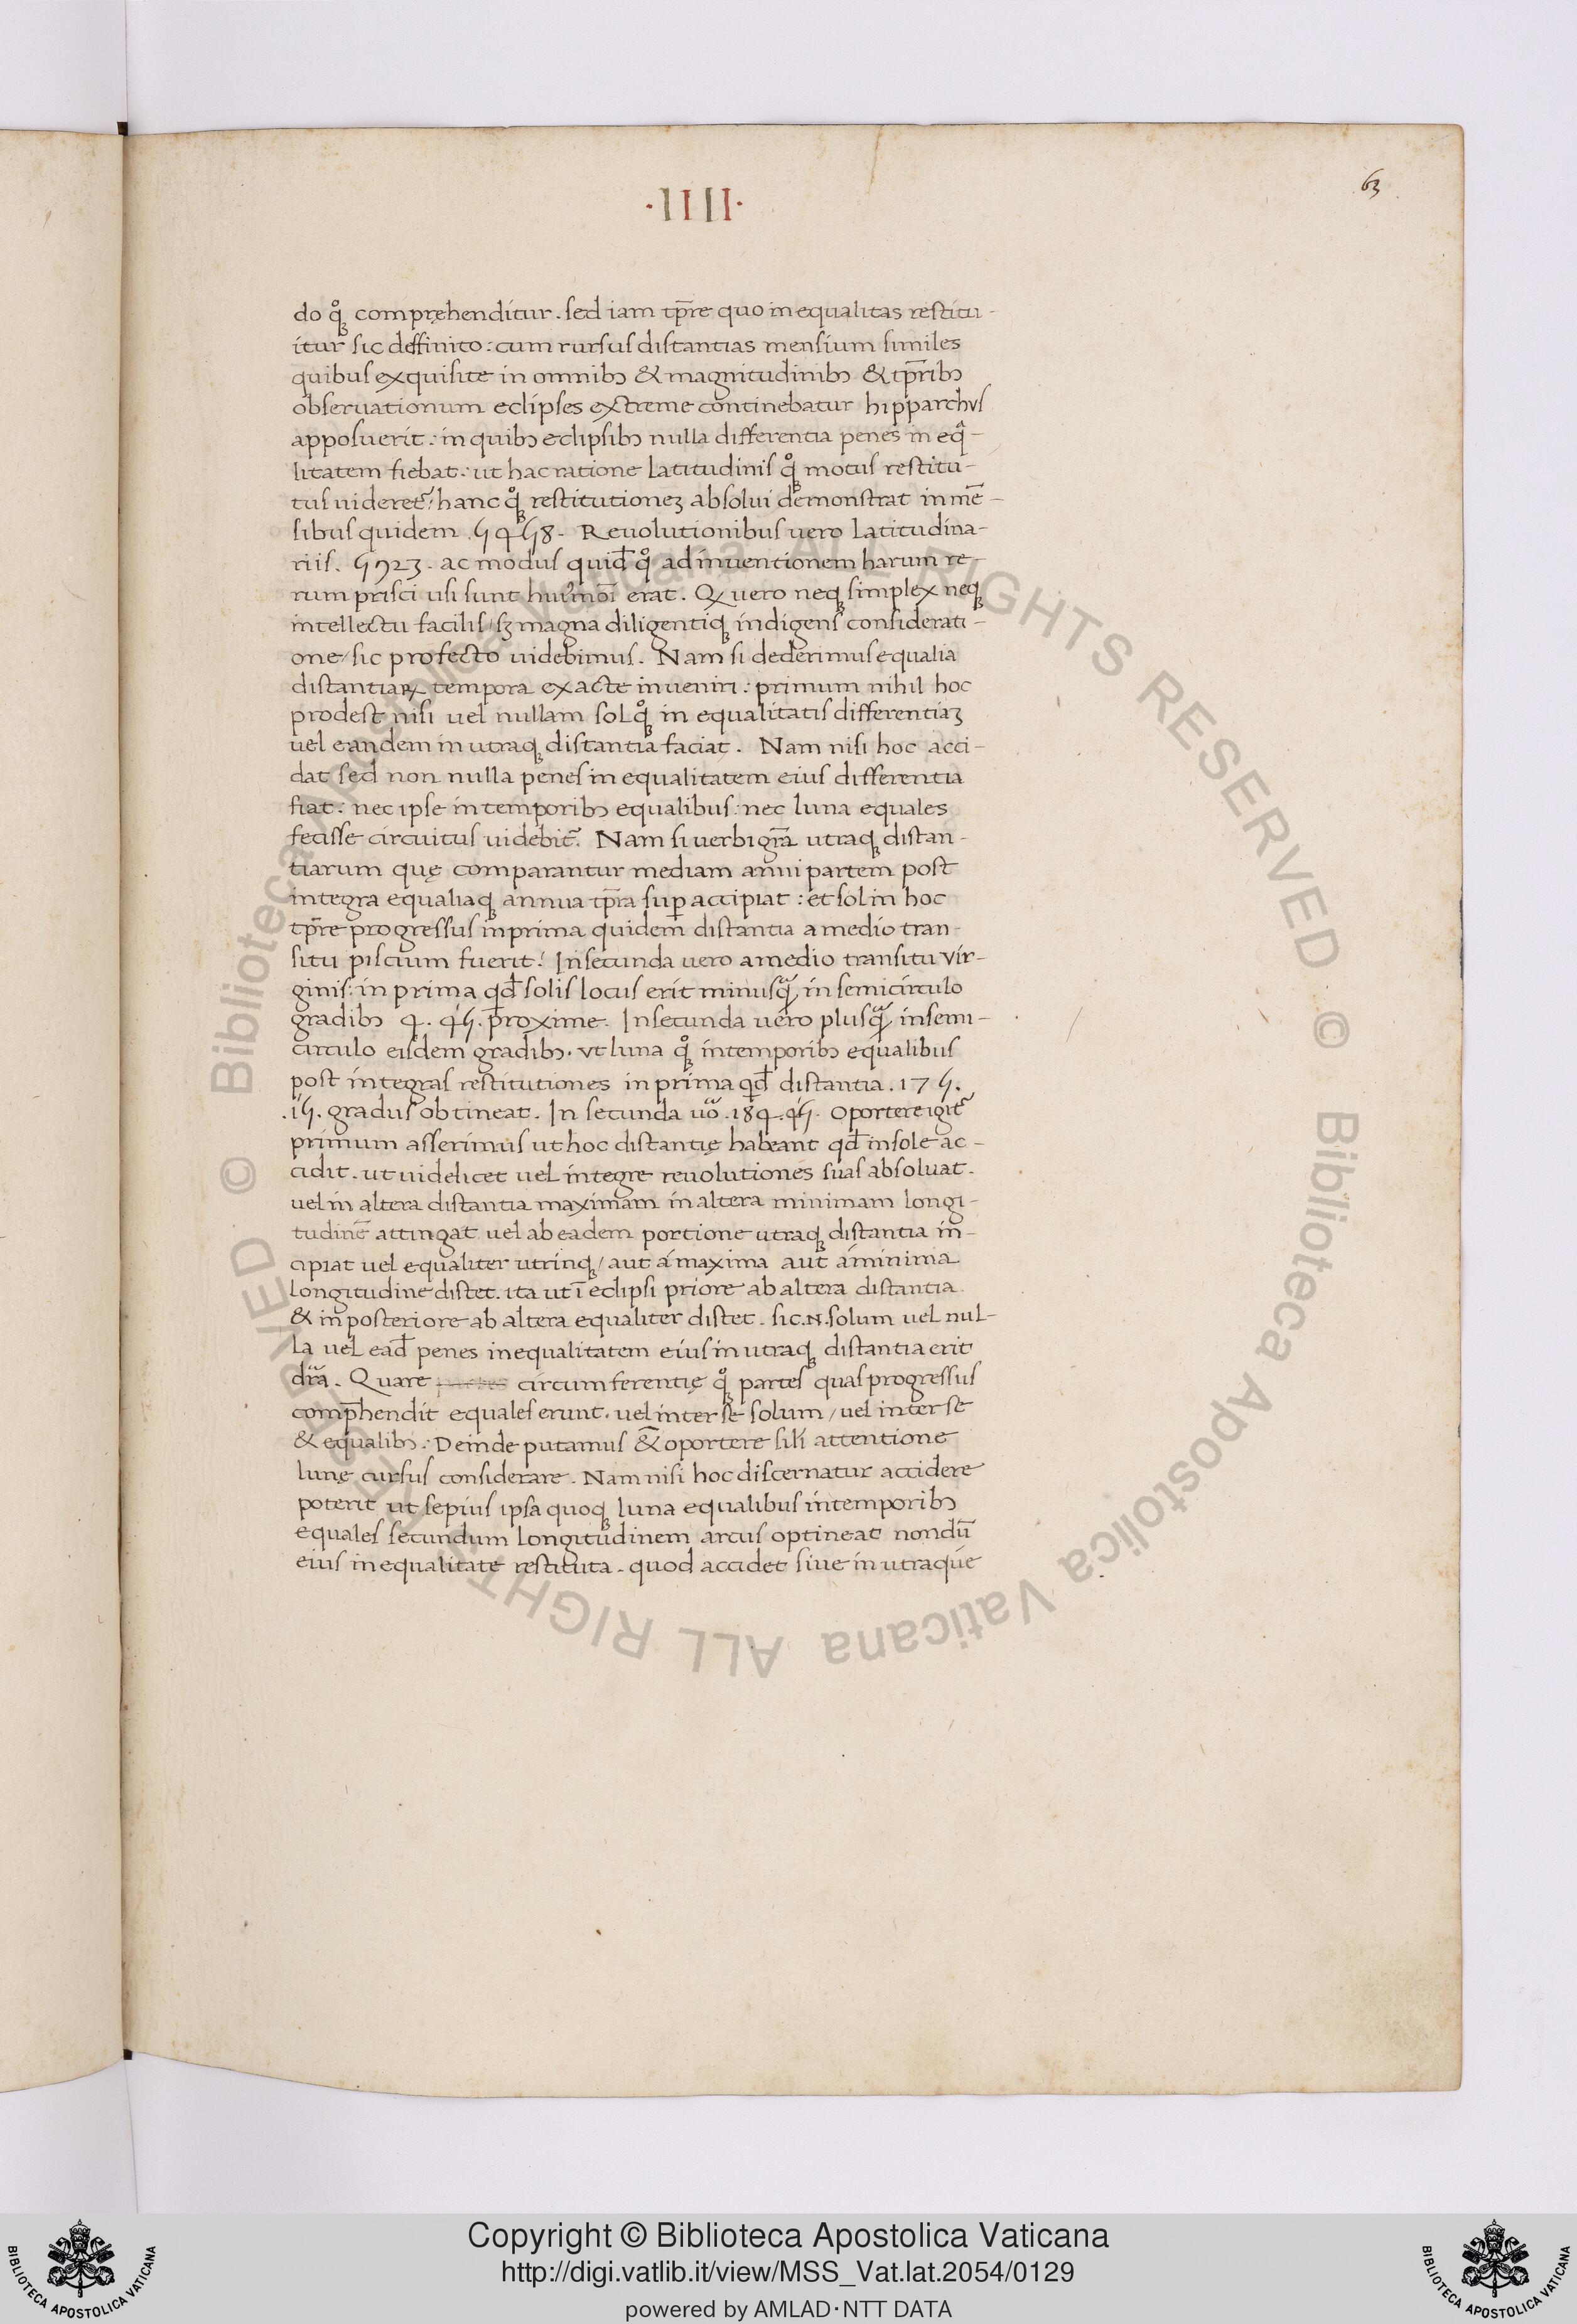 ·IIII·
63
do qͦꝫ compręhenditur. sed iam tp̄re quo inequalitas restitu-
itur sic deffinito: cum rursus distantias mensium similes
quibus exquisite in omnibꝫ & magnitudinibꝫ & tp̄ribꝫ
obseruationum eclipses extreme continebatur hipparchus
apposuerit: in quibꝫ eclipsibꝫ nulla differentia penes ineqᵃ-
litatem fiebat: ut hac ratione latitudinis qͦꝫ motus restitu-
tus uideret᷑: hanc qͦꝫ restitutioneꝫ absolui demonstrat in mē-
sibus quidem .5458. Reuolutionibus uero latitudina-
riis. 5923. ac modus quid̄ qͦꝫ ad inuentionem harum re-
rum prisci usi sunt huiꝰmōi erat. Qꝫ uero neqꝫ simplex neqꝫ
intellectu facilis/ sꝫ magna diligentiqꝫ indigens considerati-
one/ sic profecto uidebimus. Nam si dederimus equalia
distantiaꝝ tempora exacte inueniri: primum nihil hoc
prodest nisi uel nullam sol qͦꝫ inequalitatis differentiaꝫ
uel eandem in utraqꝫ distantia faciat. Nam nisi hoc acci-
dat sed non nulla penes inequalitatem eius differentia
fiat: nec ipse in temporibꝫ equalibus: nec luna equales
fecisse circuitus uidebit᷑. Nam si uerbi gr̄a utraqꝫ distan-
tiarum quę comparantur mediam anni partem post
integra equaliaqꝫ annua tp̄ra suꝑ accipiat: et sol in hoc
tp̄re progressus in prima quidem distantia a medio tran-
situ piscium fuerit: In secunda uero a medio transitu vir-
ginis: in prima qd̄ solis locus erit minusqᵃꝫ in semicirculo
gradibꝫ 4. 45. proxime. In secunda uero plusqᵃꝫ in semi-
circulo eisdem gradibꝫ. vt luna qͦꝫ in temporibꝫ equalibus
post integras restitutiones in prima qd̄ distantia. 175.
.15. gradus obtineat. In secunda uͦo .184.45. Oportere igit᷑
primum asserimus ut hoc distantię habeant qd̄ in sole ac-
cidit. ut uidelicet uel integre reuolutiones suas absoluat.
uel in altera distantia maximam in altera minimam longi-
tudinē attingat uel ab eadem portione utraqꝫ distantia in-
cipiat uel equaliter utrinqꝫ/ aut á maxima aut á minima
longitudine distet. ita ut ī eclipsi priore ab altera distantia
& in posteriore ab altera equaliter distet. sic .N. solum uel nul-
la uel ead̄ penes inequalitatem eius in utraqꝫ distantia erit
dr̄a. Quare circumferentię qͦꝫ partes quas progressus
comp̄hendit equales erunt. uel inter se solum/ uel inter se
& equalibꝫ: Deinde putamus & oportere sili attentione
lunę cursus considerare. Nam nisi hoc discernatur accidere
poterit ut sepius ipsa quoqꝫ luna equalibus in temporibꝫ
equales secundum longitudinem arcus optineat nondū
eius inequalitate restituta. quod accidet siue in utraque
© Biblioteca Apostolica Vaticana ALL RIGHTS RESERVED © Biblioteca Apostolica Vaticana ALL RIGHTS RESERVED
Copyright © Biblioteca Apostolica Vaticana
http://digi.vatlib.it/view/MSS_Vat.lat.2054/0129
powered by AMLAD·NTT DATA
BIBLIOTECA APOSTOLICA VATICANA
BIBLIOTECA APOSTOLICA VATICANA